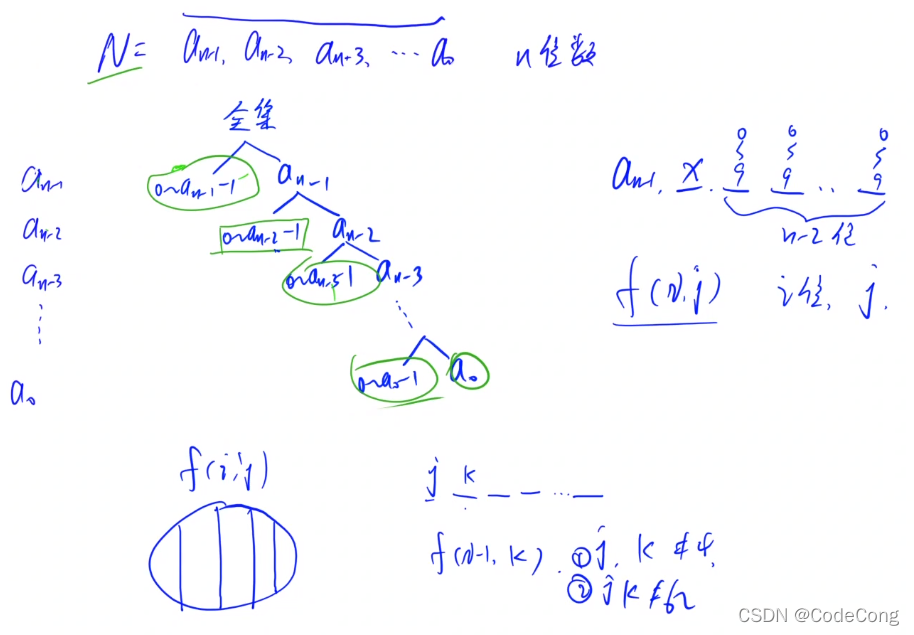 N= aₙ₋₁, aₙ₋₂, aₙ₋₃, ⋯ a₀ n位数
全集
aₙ₋₁ 0~aₙ₋₁-1 aₙ₋₁
aₙ₋₂ 0~aₙ₋₂-1 aₙ₋₂
aₙ₋₃ 0~aₙ₋₃-1 aₙ₋₃
⋮
a₀ 0~a₀-1 a₀
aₙ₋₁, x, 0~9 0~9 ‥ 0~9
n-2位
f(i,j) i位, j.
f(i,j)
j k _ _ ⋯ _
f(i-1, k). ① j, k ≠ 4,
② jk ≠ 62
CSDN @CodeCong